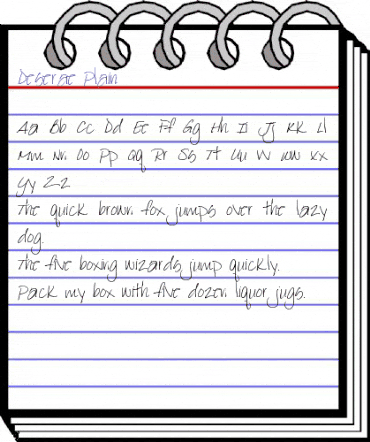 Deserae Plain
Aa Bb Cc Dd Ee Ff Gg Hh Ii Jj Kk Ll
Mm Nn Oo Pp Qq Rr Ss Tt Uu Vv Ww Xx
Yy Zz
The quick brown fox jumps over the lazy
dog.
The five boxing wizards jump quickly.
Pack my box with five dozen liquor jugs.